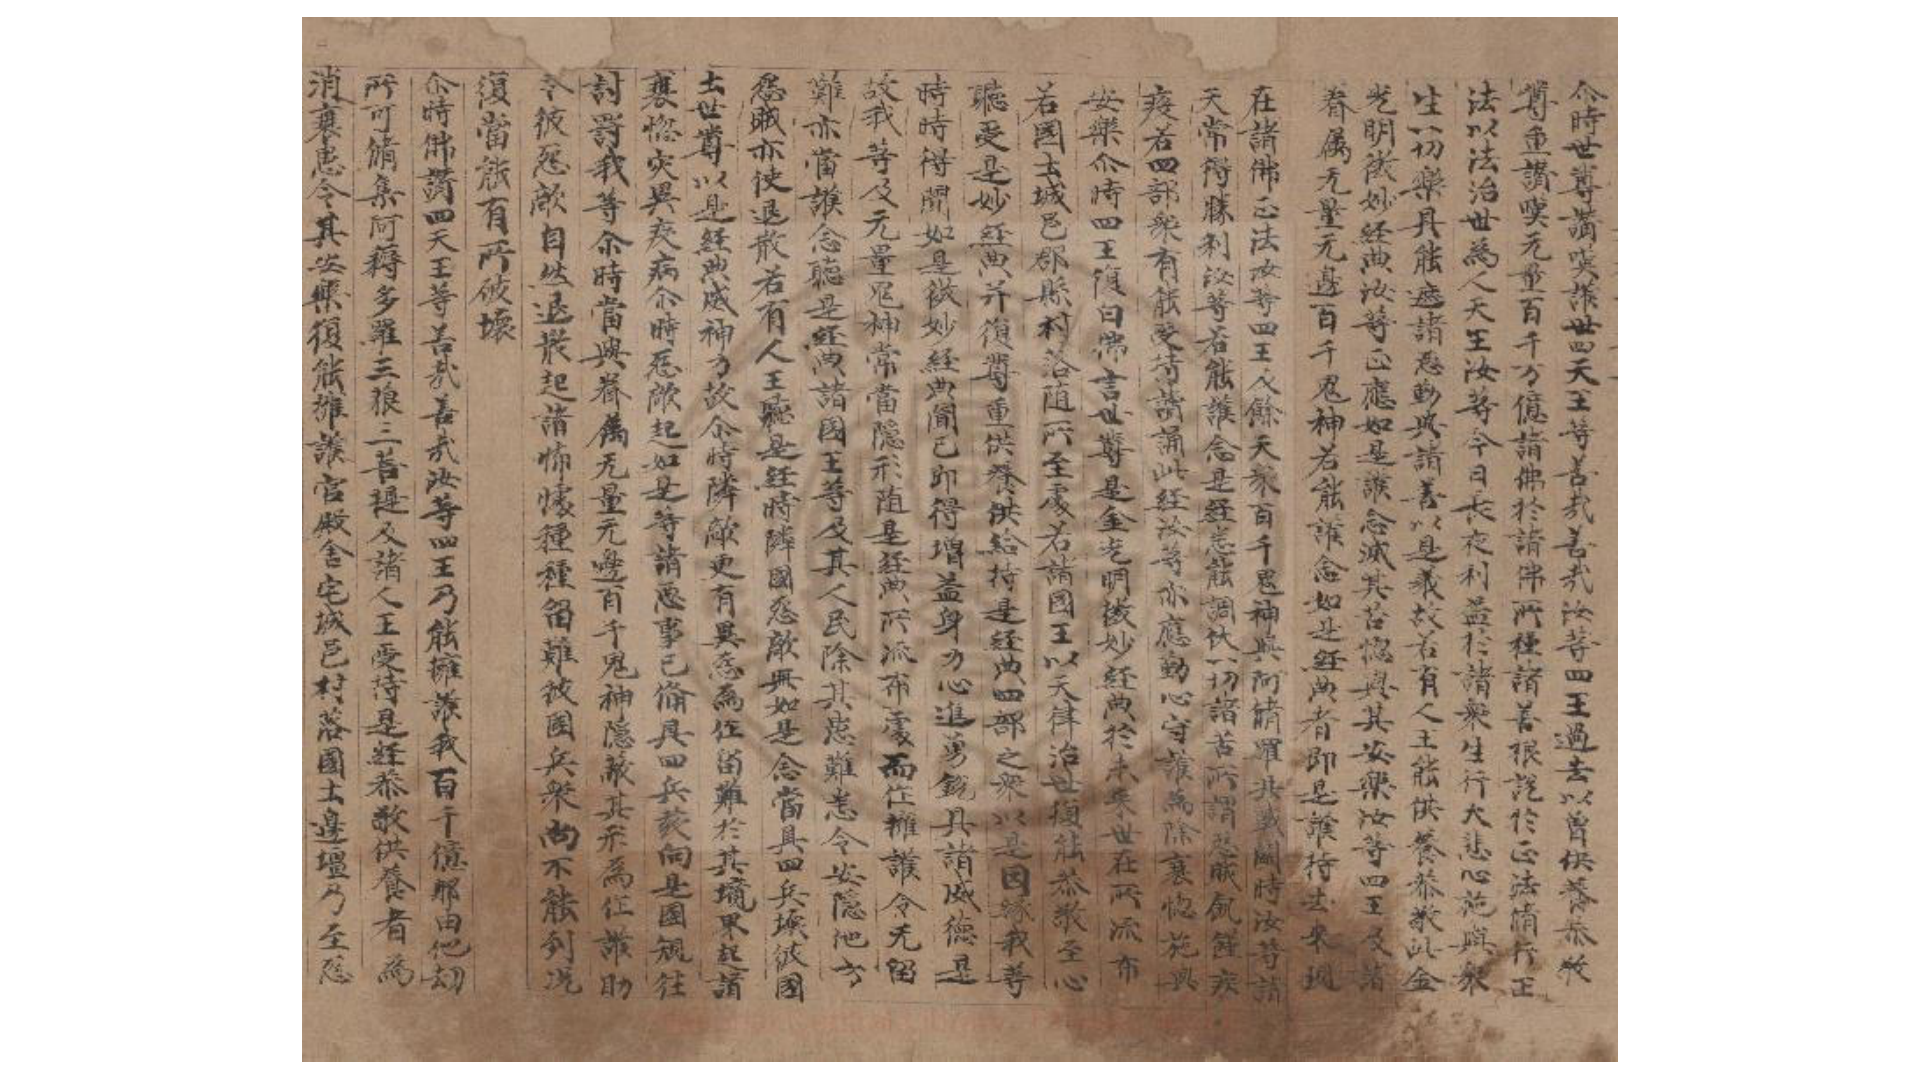 尒時世尊讚嘆護世四天王等善哉善哉汝等四王過去以曾供養恭敬
尊重讚嘆无量百千万億諸佛於諸佛所種諸善根說於正法脩行正
法以法治世為人天王汝等今日長夜利益於諸衆生行大悲心施與衆
生一切樂具能遮諸惡勤與諸善以是義故若有人王能供養恭敬此金
光明微妙經典汝等正應如是護念滅其苦惱與其安樂汝等四王及諸
眷属无量无邊百千鬼神若能護念如是經典者即是護持去来現
在諸佛正法汝等四王及餘天衆百千鬼神與阿脩羅共戰鬬時汝等諸
天常得勝利汝等若能護念是經悉能調伏一切諸苦所謂惡賊飢饉疾
疫若四部衆有能受持讀誦此經汝等亦應勤心守護為除衰惱施與
安樂尒時四王復白佛言世尊是金光明微妙經典於未来世在所流布
若國土城邑郡縣村落随所至處若諸國王以天律治世復能恭敬至心
聽受是妙經典并復尊重供養供給持是經典四部之衆以是因緣我等
時時得聞如是微妙經典聞已即得增益身力心進勇銳具諸威德是
故我等及无量鬼神常當隱形随是經典所流布處而作擁護令无留
難亦當護念聽是經典諸國王等及其人民除其患難悉令安隱他方
怨賊亦使退散若有人王聽是經時隣國怨敵興如是念當具四兵壞彼國
土世尊以是經典威神力故尒時隣敵更有異怨為作留難於其境界起諸
衰惱灾異疫病尒時怨敵起如是等諸惡事已俻具四兵發向是國規往
討罸我等尒時當與眷属无量无邊百千鬼神隱蔽其形為作護助
令彼怨敵自然退散起諸怖懅種種留難彼國兵衆尚不能到况
復當能有所破壞
尒時佛讚四天王等善哉善哉汝等四王乃能擁護我百千億那由他劫
所可脩集阿耨多羅三藐三菩提及諸人王受持是經恭敬供養者為
消衰患令其安樂復能擁護宮殿舍宅城邑村落國土邊壃乃至怨